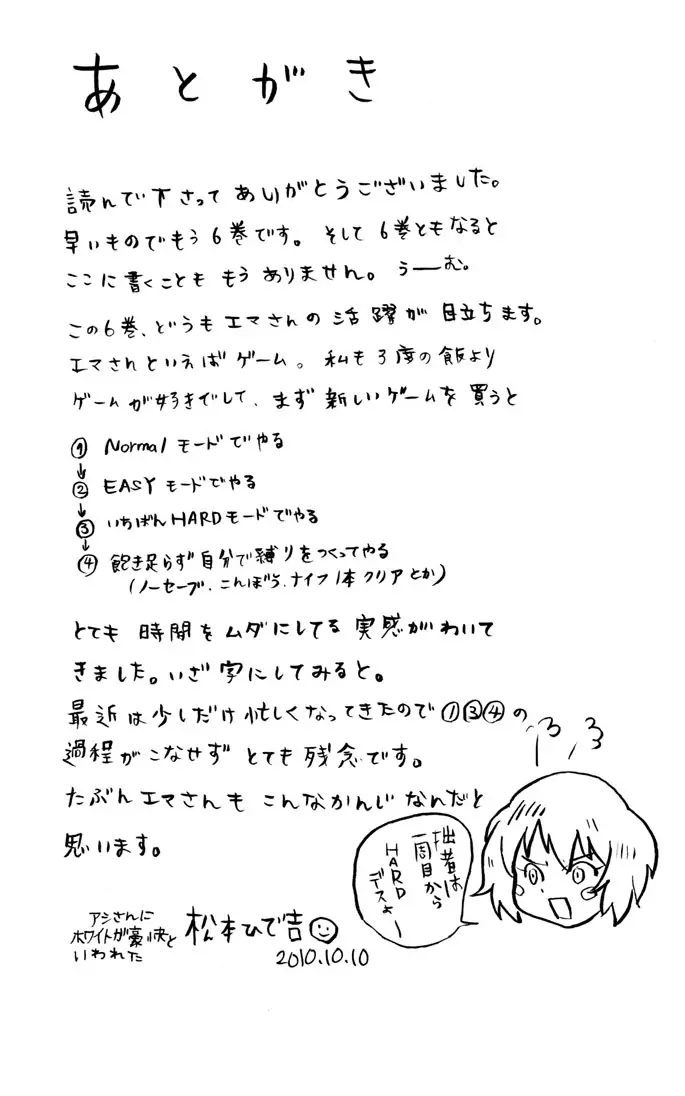 あとがき
読んで下さって ありがとうございました。
早いものでもう6巻です。そして6巻ともなると
ここに書くことも もう ありません。うーむ。
この6巻、どうもエマさんの活躍が目立ちます。
エマさんといえばゲーム。私も3度の飯より
ゲームが好きでして、まず新しいゲームを買うと
① Normalモードでやる
↓
② EASYモードでやる
↓
③ いちばんHARDモードでやる
↓
④ 飽き足らず自分で縛りをつくってやる
(ノーセーブ、こんぼう、ナイフ1本クリアとか)
とても時間をムダにしてる実感がわいて
きました。いざ字にしてみると。
最近は少しだけ忙しくなってきたので①③④の
過程がこなせずとても残念です。
たぶんエマさんもこんなかんじなんだと
思います。
拙者は
一周目から
HARD
デスよー
アシさんに
ホワイトが豪快と
いわれた
松本ひで吉
2010.10.10